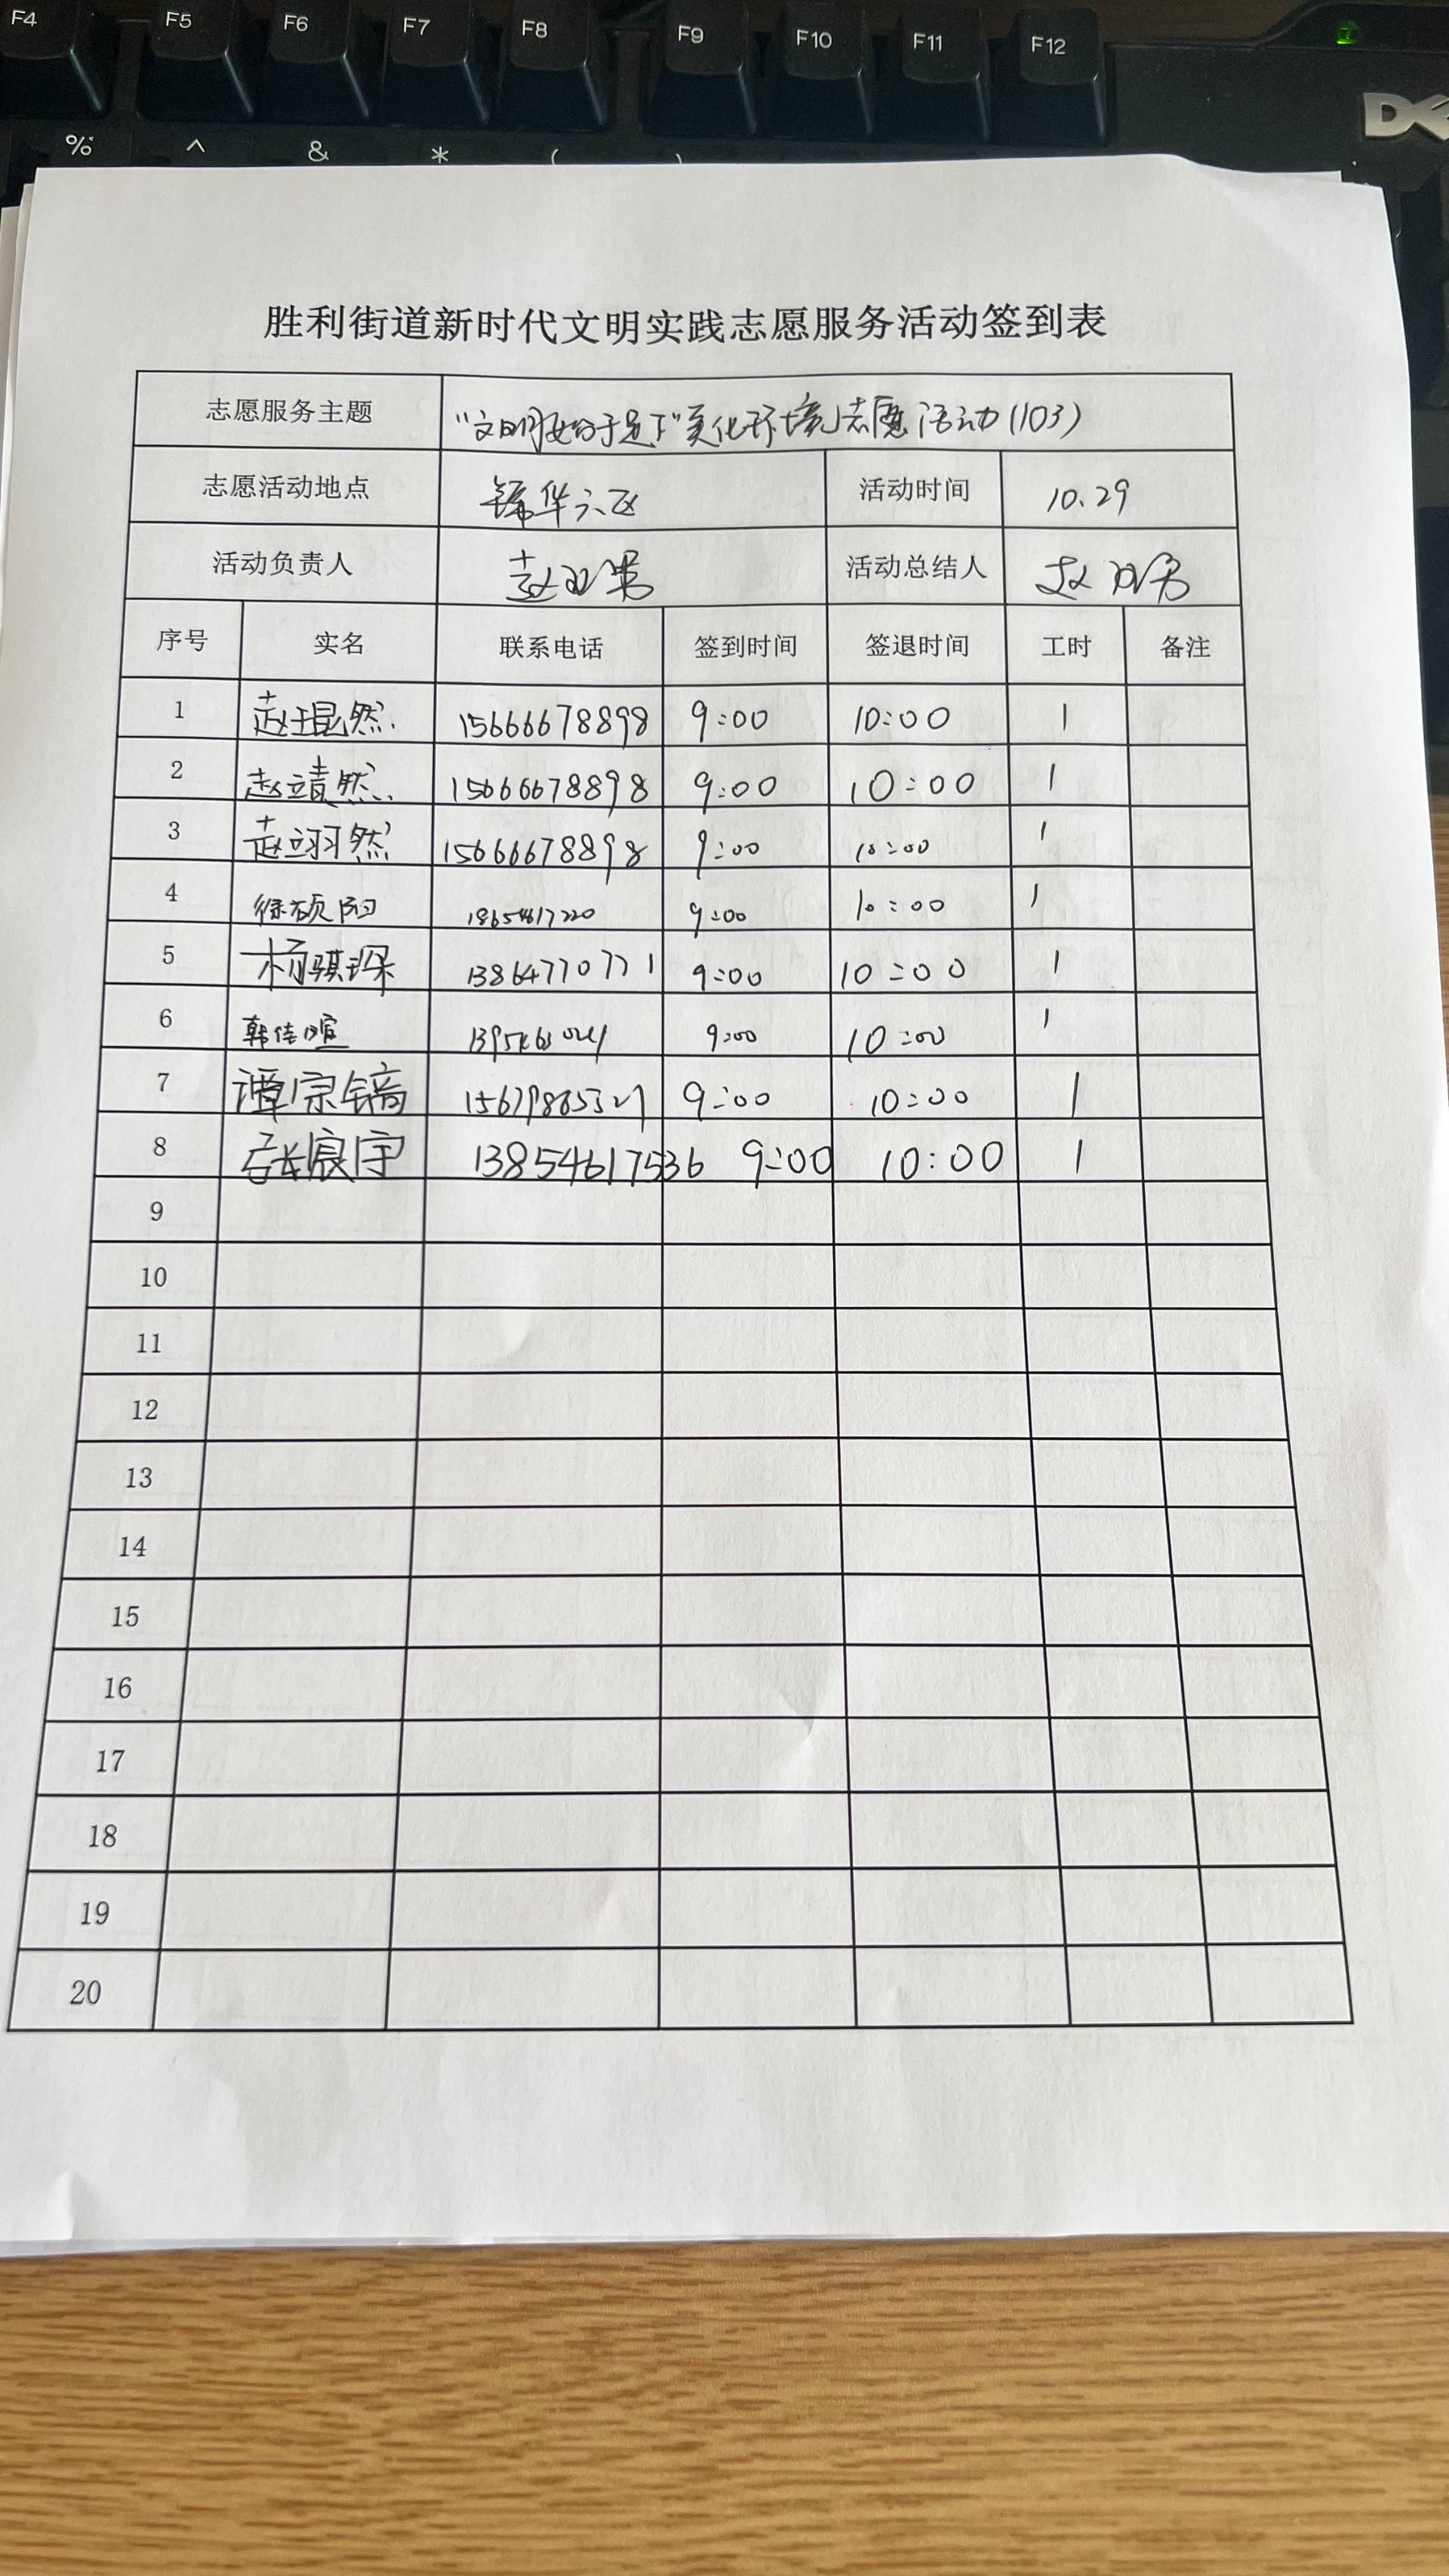 F4 F5 F6 F7 F8 F9 F10 F11 F12
% ^ & * ( )
胜利街道新时代文明实践志愿服务活动签到表
志愿服务主题 "文明始于足下"美化环境志愿活动(103)
志愿活动地点 锦华六区 活动时间 10.29
活动负责人 赵 活动总结人 赵
序号 实名 联系电话 签到时间 签退时间 工时 备注
1 赵琨然 15666678898 9:00 10:00 1
2 赵靖然 15666678898 9:00 10:00 1
3 赵翊然 15666678898 9:00 10:00 1
4 徐硕阳 18654617220 9:00 10:00 1
5 杨骐琛 13864770771 9:00 10:00 1
6 韩佳暄 9:00 10:00 1
7 谭宗镐 9:00 10:00 1
8 张宸宇 13854617536 9:00 10:00 1
9
10
11
12
13
14
15
16
17
18
19
20